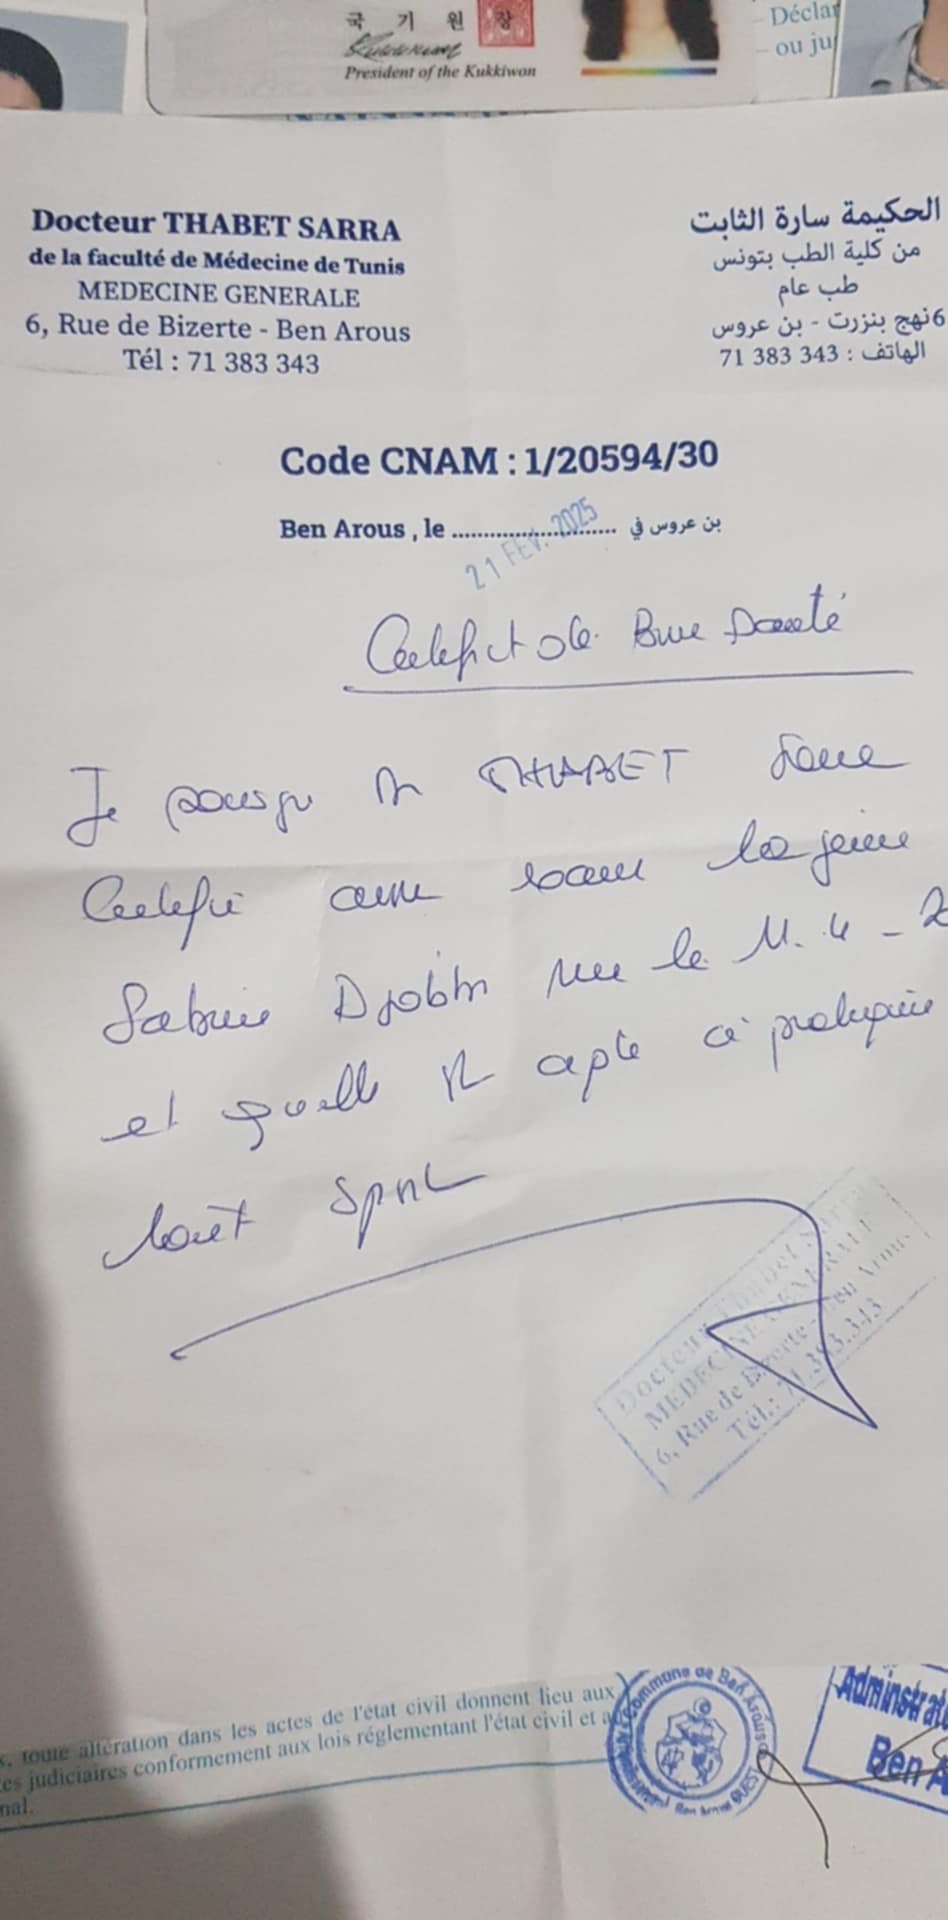 국 기 원 장
President of the Kukkiwon
- Déclar
- ou ju
Docteur THABET SARRA
de la faculté de Médecine de Tunis
MEDECINE GENERALE
6, Rue de Bizerte - Ben Arous
Tél : 71 383 343
الحكيمة سارة الثابت
من كلية الطب بتونس
طب عام
6 نهج بنزرت - بن عروس
الهاتف : 343 383 71
Code CNAM : 1/20594/30
Ben Arous , le ........................ بن عروس في
21 FEV. 2025
Certificat de Bonne Santé
Je THABET
Certifie avoir la jeune
née le 11. 4 - 2
et qu'elle est apte à pratiquer
tout sport
Docteur THABET SARRA
MEDECINE GENERALE
6, Rue de Bizerte - Ben Arous
Tél.: 71.383.343
x, toute altération dans les actes de l'état civil donnent lieu aux
es judiciaires conformement aux lois réglementant l'état civil et a
nal.
Commune de Ben Arous
Ben Arous OUEST
Adminstrat
Ben A